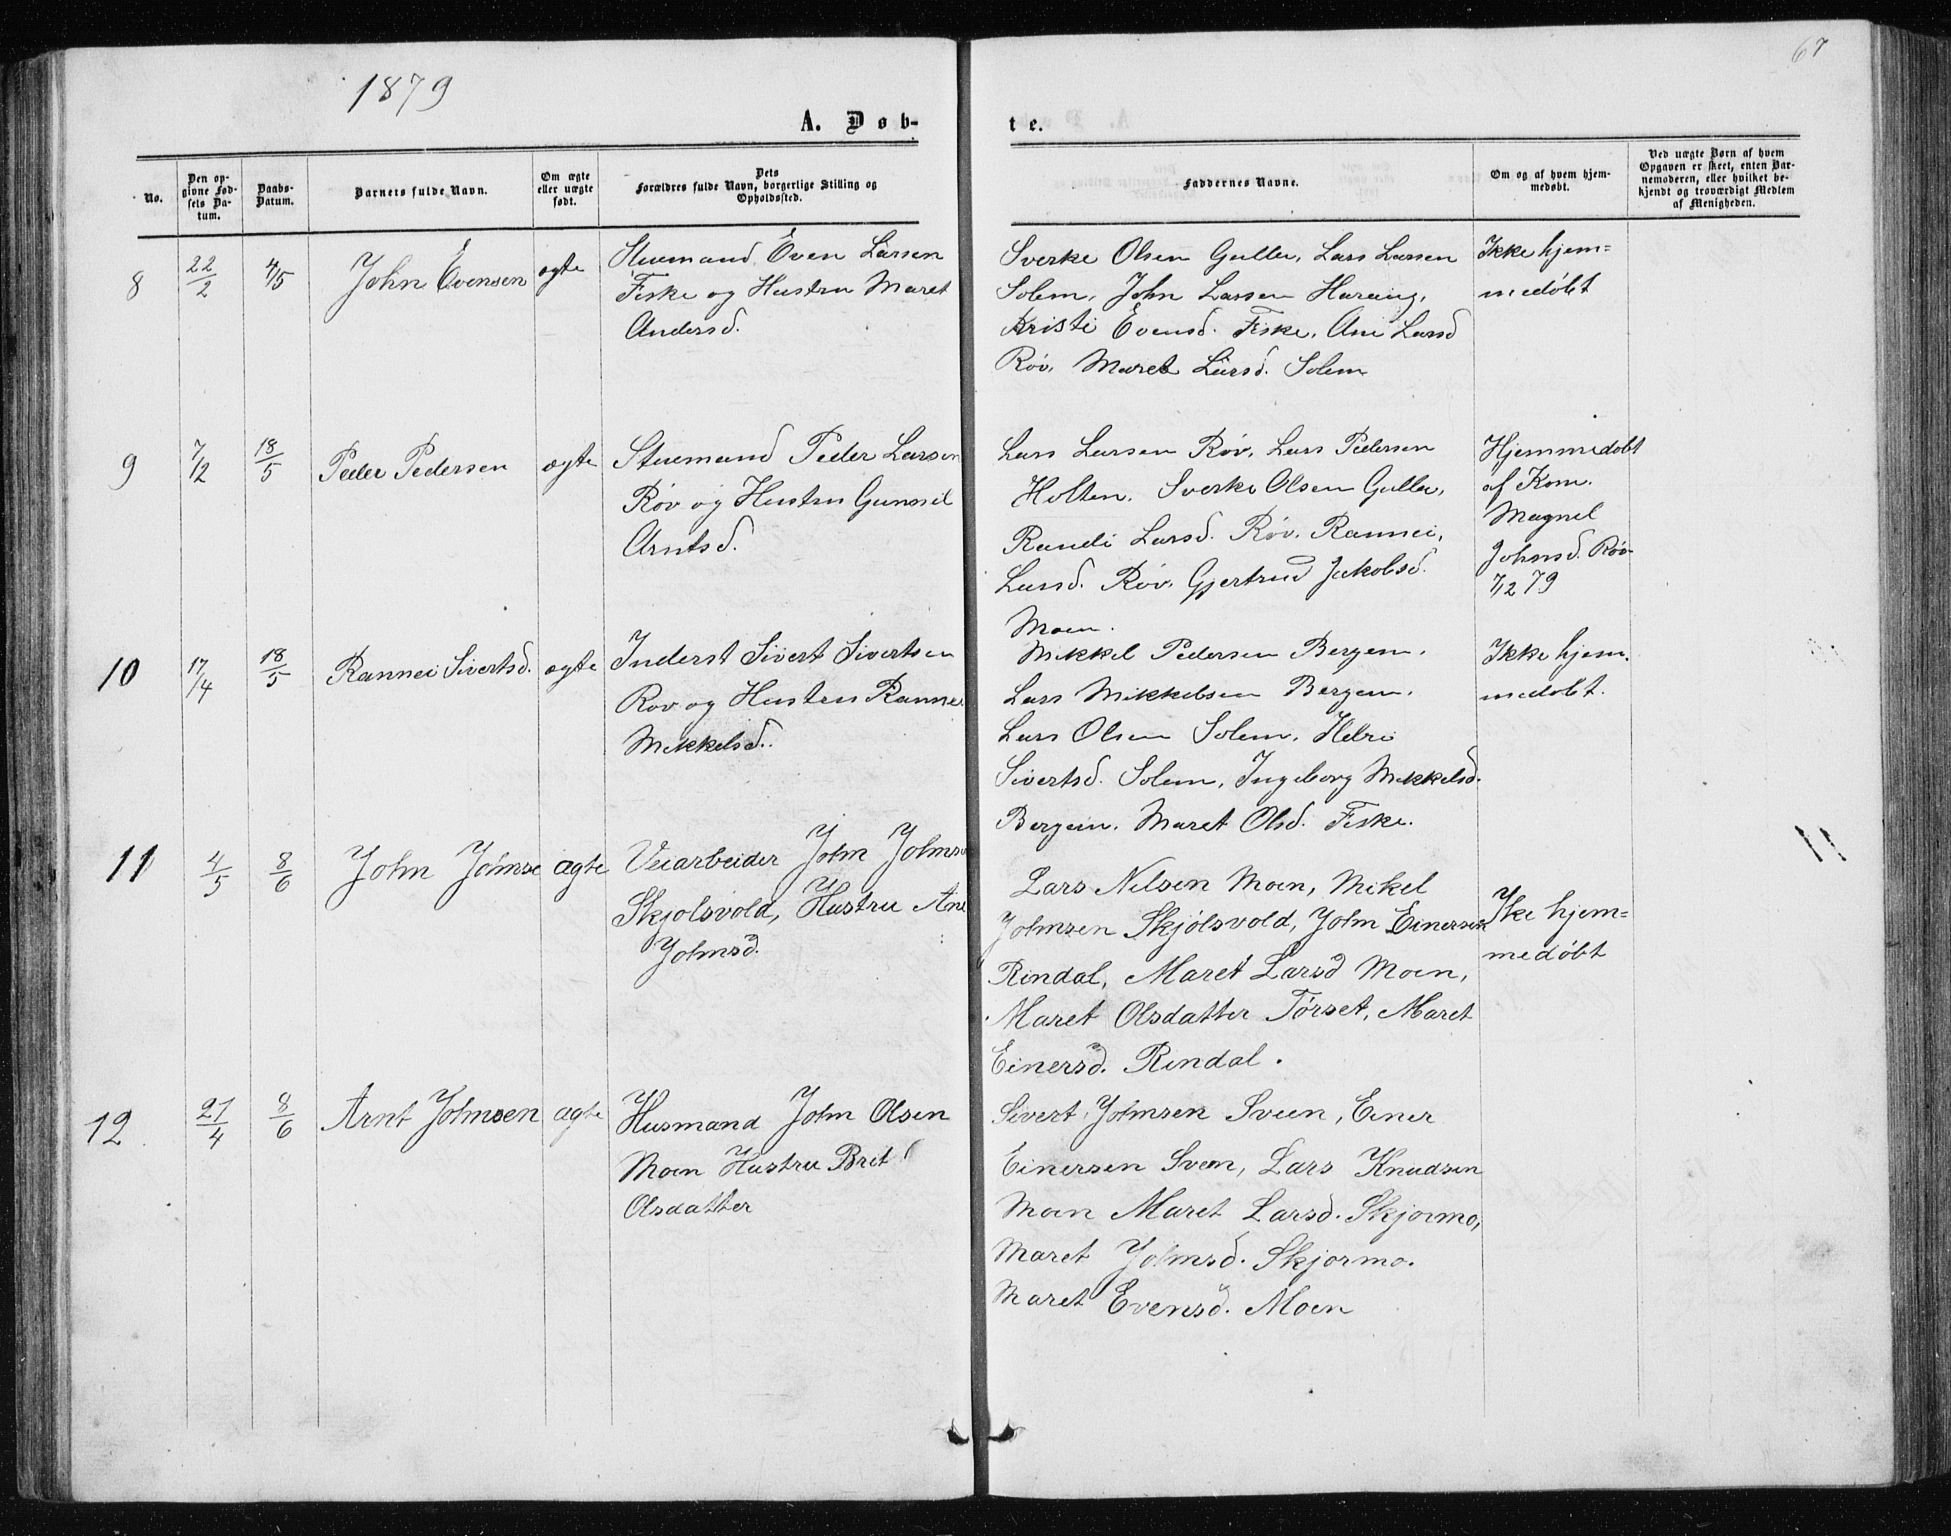 1879
67
A. Døb-
te.
No.
Den op-
givne Fød-
sels Da-
tum.
Daabs-
Datum.
Barnets fulde Navn.
Om ægte
eller uægte
født.
Dets
Forældres fulde Navn, borgerlige Stilling og
Opholdssted.
Faddernes Navne.
Om og af hvem hjem-
medøbt.
Ved uægte Børn af hvem
Opgaven er skeet, enten Bar-
nemoderen, eller hvilket be-
kjendt og troværdigt Medlem
af Menigheden.
8
22/2
4/5
John Evensen
ægte
Stuemand Even Larsen
Fiske og Hustru Maret
Andersd.
Sverke Olsen Gulla, Lars Larsen
Solem, John Larsen Harang,
Kristi Evensd. Fiske, Ane Larsd
Røv, Maret Larsd. Solem
Ikke hjem=
medøbt
9
7/2
18/5
Peder Pedersen
ægte
Stuemand Peder Larsen
Røv og Hustru Gunnil
Arntsd.
Lars Larsen Røv, Lars Pedersen
Holten, Sverke Olsen Gulla,
Randi Larsd. Røv, Rannei,
Larsd. Røv, Gjertrud Jakobsd.
Moen.
Hjemmedøbt
af Kom.
Magnil
Johnsd. Røv
7/2 79
10
17/4
18/5
Rannei Sivertsd.
ægte
Inderst Sivert Sivertsen
Røv og Hustru Rannei
Mikkelsd.
Mikkel Pedersen Bergem,
Lars Mikkelsen Bergem,
Lars Olsen Solem,
Sivertsd. Solem, Ingeborg Mikkelsd.
Bergem, Maret Olsd. Fiske.
Ikke hjem.
medøbt.
11
4/5
8/6
John Johnse
ægte
Veiarbeider John Johnsen
Skjølsvold, Hustru Ane
Johnsd.
Lars Nilsen Moen, Mikel
Johnsen Skjølsvold, John Einersen
Rindal, Maret Larsd Moen,
Maret Olsdatter Tørset, Maret
Einersd. Rindal.
Ike hjem=
medøbt
12
27/4
8/6
Arnt Johnsen
ægte
Husmand John Olsen
Moen Hustru Brit
Olsdatter
Sivert Johnsen Sveen, Einer
Einersen Sveen, Lars Knudsen
Moen Maret Larsd. Skjørmo,
Maret Johnsd. Skjørmo.
Maret Evensd. Moen